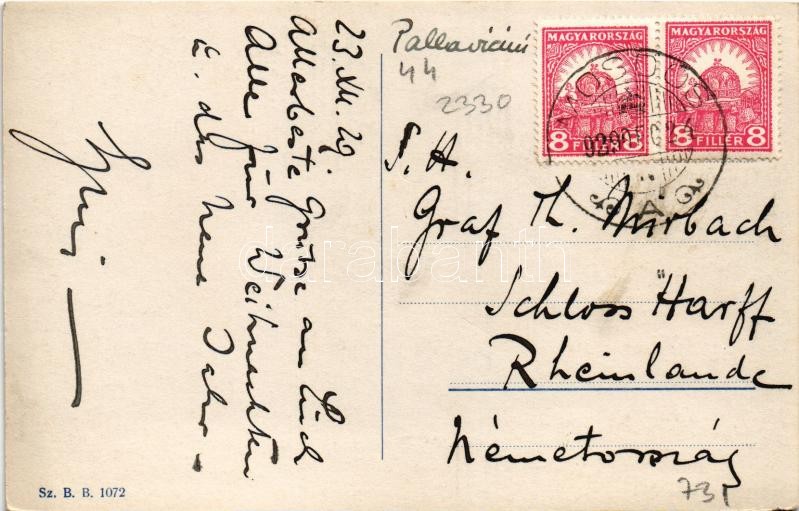 23. XII. 29.
Allerbeste Grüsse an Euch
Alle für Weihnachten
u. das neue Jahr.
Pallavicini
44
2330
MAGYARORSZÁG
8 FILLÉR 8
MAGYARORSZÁG
8 FILLÉR 8
A
S. H.
Graf Th. Mirbach
Schloss Harff
Rheinlande
Németország
731
Sz. B. B. 1072
darabanth